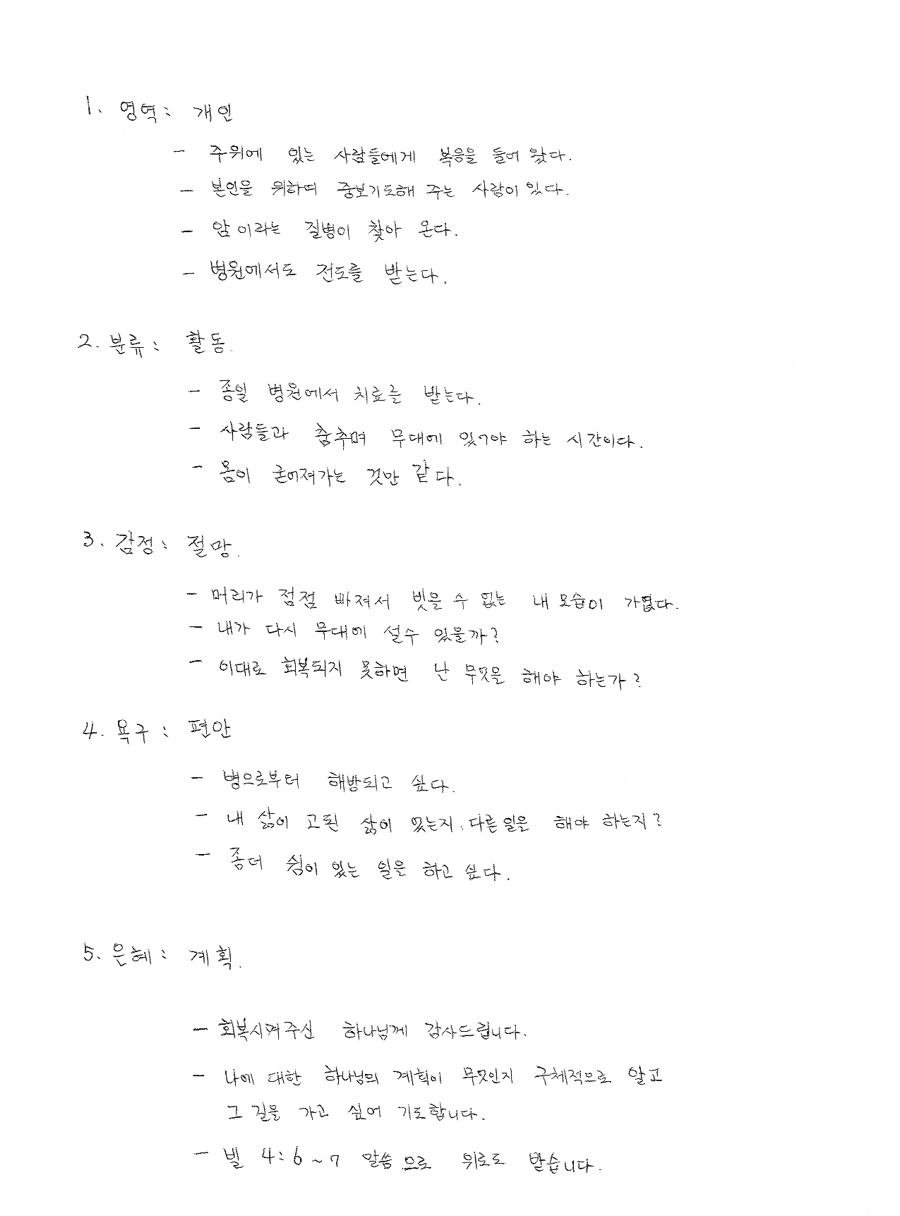 1. 영역 : 개인
- 주위에 있는 사람들에게 복음을 들어 왔다.
- 본인을 위하여 중보기도해 주는 사람이 있다.
- 암이라는 질병이 찾아 온다.
- 병원에서도 전도를 받는다.
2. 분류 : 활동.
- 종일 병원에서 치료를 받는다.
- 사람들과 춤추며 무대에 있어야 하는 시간이다.
- 몸이 굳어져가는 것만 같다.
3. 감정 : 절망.
- 머리가 점점 빠져서 빗을 수 없는 내 모습이 가엾다.
- 내가 다시 무대에 설수 있을까?
- 이대로 회복되지 못하면 난 무엇을 해야 하는가?
4. 욕구 : 편안
- 병으로부터 해방되고 싶다.
- 내 삶이 고된 삶이 었는지. 다른일을 해야 하는지?
- 좀더 쉼이 있는 일을 하고 싶다.
5. 은혜 : 계획.
- 회복시켜주신 하나님께 감사드립니다.
- 나에 대한 하나님의 계획이 무엇인지 구체적으로 알고
그 길을 가고 싶어 기도합니다.
- 빌 4:6~7 말씀으로 위로도 받습니다.